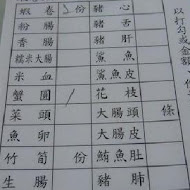 蝦卷 3份 豬心
粉腸 豬舌
香腸 豬肝
糯米大腸 鯊魚
米血 鯊魚皮
蟹圓 / 花枝
菜頭 大腸頭 條
魚卵 大腸皮
竹筍 份 魴魚肚
生腸 豬肺
以打勾或金額